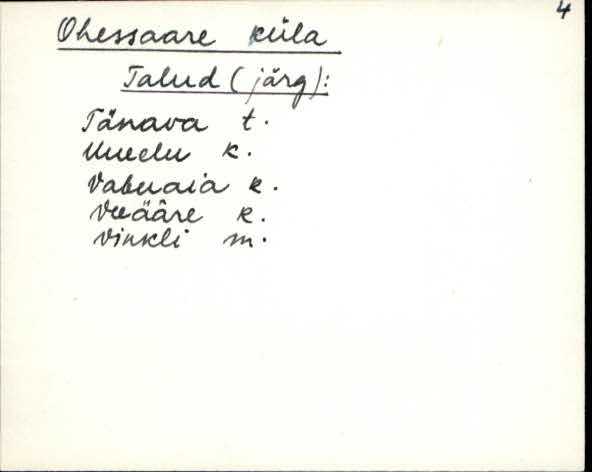 4
Ohessaare küla
Talud (järg):
Tänava t.
Uueelu k.
Vabuaia k.
Veeääre k.
Vinkli m.